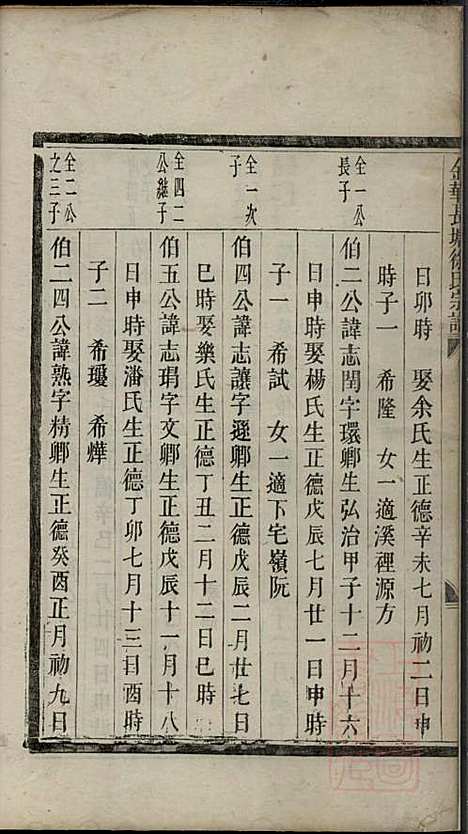 金華長塘徐氏宗譜
日卯時　娶余氏生正德辛未七月初二日申
時子一　希隆　女一適溪裡源方
仝一公長子
伯二公諱志閏字環卿生弘治甲子十二月十六
日申時娶楊氏生正德戊辰七月廿一日申時
子一　希試　女一適下宅嶺阮
仝一次子
伯四公諱志讓字遜卿生正德戊辰二月廿七日
巳時娶樂氏生正德丁丑二月十二日巳時
仝四二公繼子
伯五公諱志琄字文卿生正德戊辰十一月十八
日申時娶潘氏生正德丁卯七月十三日酉時
子二　希瓊　希燁
仝二公之三子
伯二四公諱熟字精卿生正德癸酉正月初九日